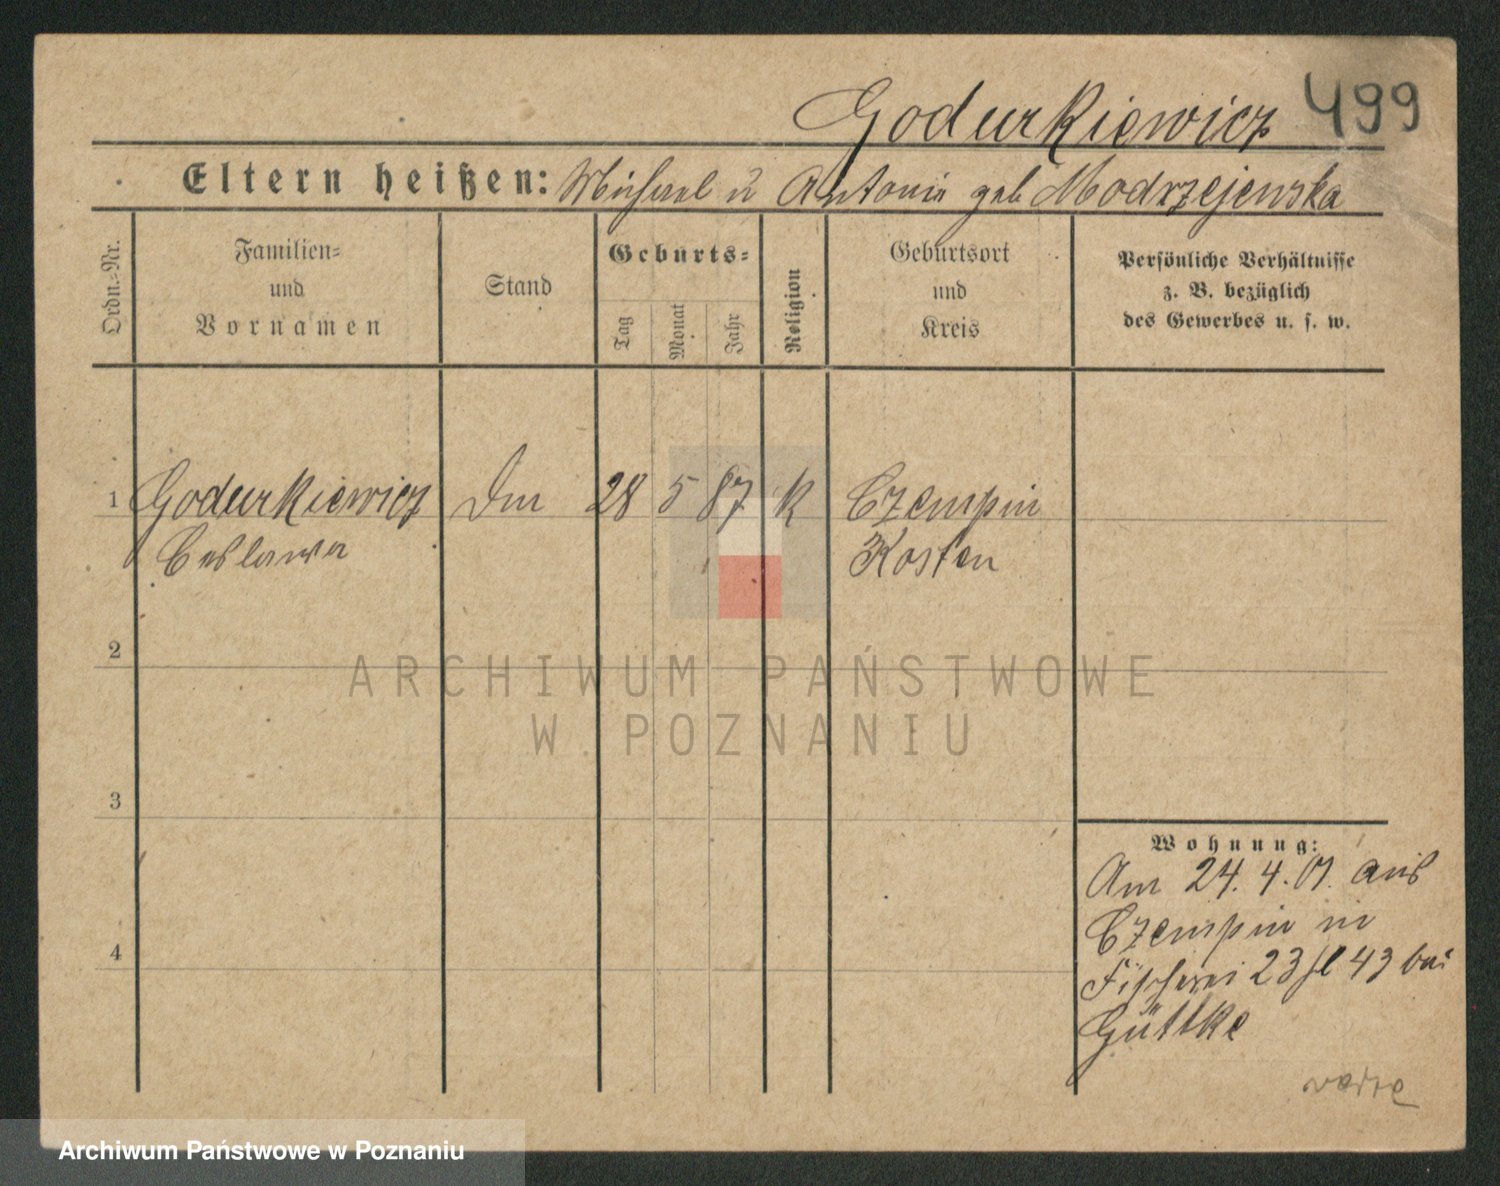 Godurkiewicz 499
Eltern heißen: Michael u Antonie geb Modrzejewska
Ordn.-Nr.
Familien-
und
Vornamen
Stand
Geburts-
Tag
Monat
Jahr
Religion
Geburtsort
und
Kreis
Persönliche Verhältnisse
z. B. bezüglich
des Gewerbes u. s. w.
1 Godurkiewicz 28 5 87 k Czempin
Ceslawa Kosten
2
3
4
ARCHIWUM PAŃSTWOWE
W POZNANIU
Wohnung:
Am 24. 4. 01. aus
Czempin in
Fischerei 23 43 bei
Güttke
Archiwum Państwowe w Poznaniu